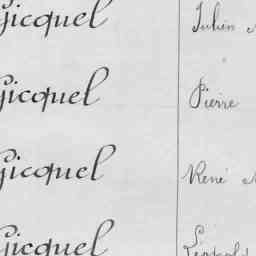 Gicquel Julien
Gicquel Pierre
Gicquel René
Gicquel Léopold